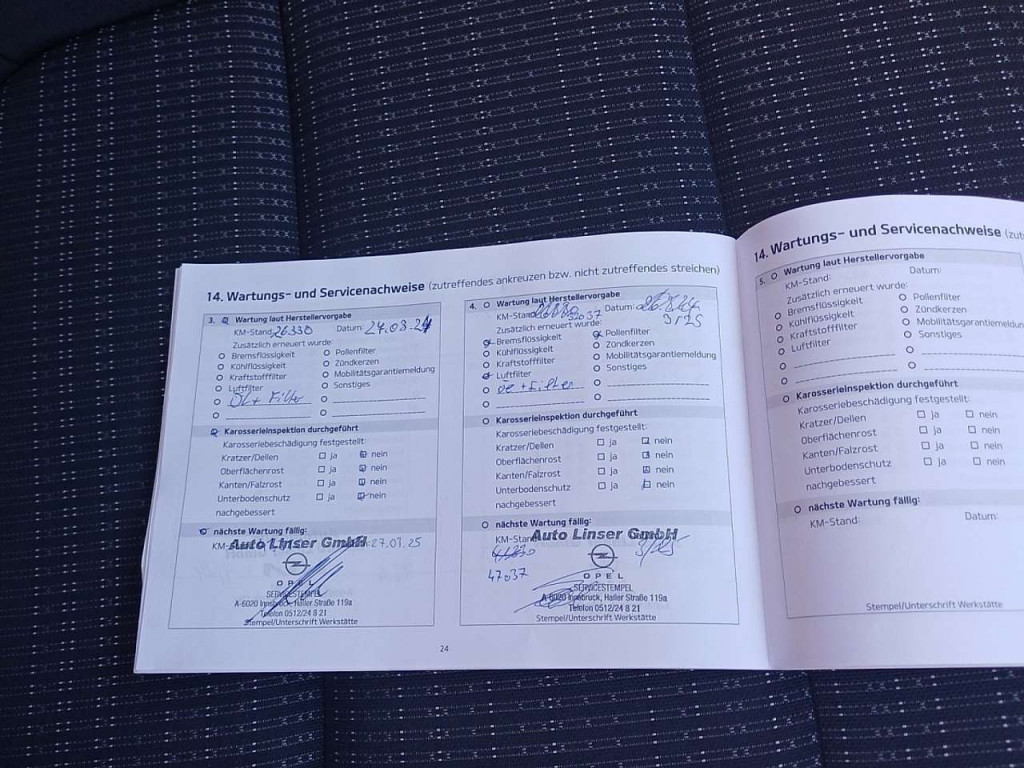 14. Wartungs- und Servicenachweise (zutreffendes ankreuzen bzw. nicht zutreffendes streichen)
3. Wartung laut Herstellervorgabe
KM-Stand: 26330 Datum: 24.03.24
Zusätzlich erneuert wurde:
Bremsflüssigkeit Pollenfilter
Kühlflüssigkeit Zündkerzen
Kraftstofffilter Mobilitätsgarantiemeldung
Luftfilter Sonstiges
Öl + Filter
Karosserieinspektion durchgeführt
Karosseriebeschädigung festgestellt:
Kratzer/Dellen ja nein
Oberflächenrost ja nein
Kanten/Falzrost ja nein
Unterbodenschutz ja nein
nachgebessert
nächste Wartung fällig:
KM- 27.01.25
Auto Linser GmbH
OPEL
SERVICESTEMPEL
A-6020 Innsbruck, Haller Straße 119a
Telefon 0512/24 8 21
Stempel/Unterschrift Werkstätte
4. Wartung laut Herstellervorgabe
KM-Stand: 32037 Datum: 3/25
Zusätzlich erneuert wurde:
Bremsflüssigkeit Pollenfilter
Kühlflüssigkeit Zündkerzen
Kraftstofffilter Mobilitätsgarantiemeldung
Luftfilter Sonstiges
Oe + Filter
Karosserieinspektion durchgeführt
Karosseriebeschädigung festgestellt:
Kratzer/Dellen ja nein
Oberflächenrost ja nein
Kanten/Falzrost ja nein
Unterbodenschutz ja nein
nachgebessert
nächste Wartung fällig:
KM-Stand
Auto Linser GmbH
47037
OPEL
SERVICESTEMPEL
A-6020 Innsbruck, Haller Straße 119a
Telefon 0512/24 8 21
Stempel/Unterschrift Werkstätte
24
14. Wartungs- und Servicenachweise
5. Wartung laut Herstellervorgabe
KM-Stand: Datum:
Zusätzlich erneuert wurde:
Bremsflüssigkeit Pollenfilter
Kühlflüssigkeit Zündkerzen
Kraftstofffilter Mobilitätsgarantiemeldun
Luftfilter Sonstiges
Karosserieinspektion durchgeführt
Karosseriebeschädigung festgestellt:
Kratzer/Dellen ja nein
Oberflächenrost ja nein
Kanten/Falzrost ja nein
Unterbodenschutz ja nein
nachgebessert
nächste Wartung fällig:
KM-Stand: Datum:
Stempel/Unterschrift Werkstätte